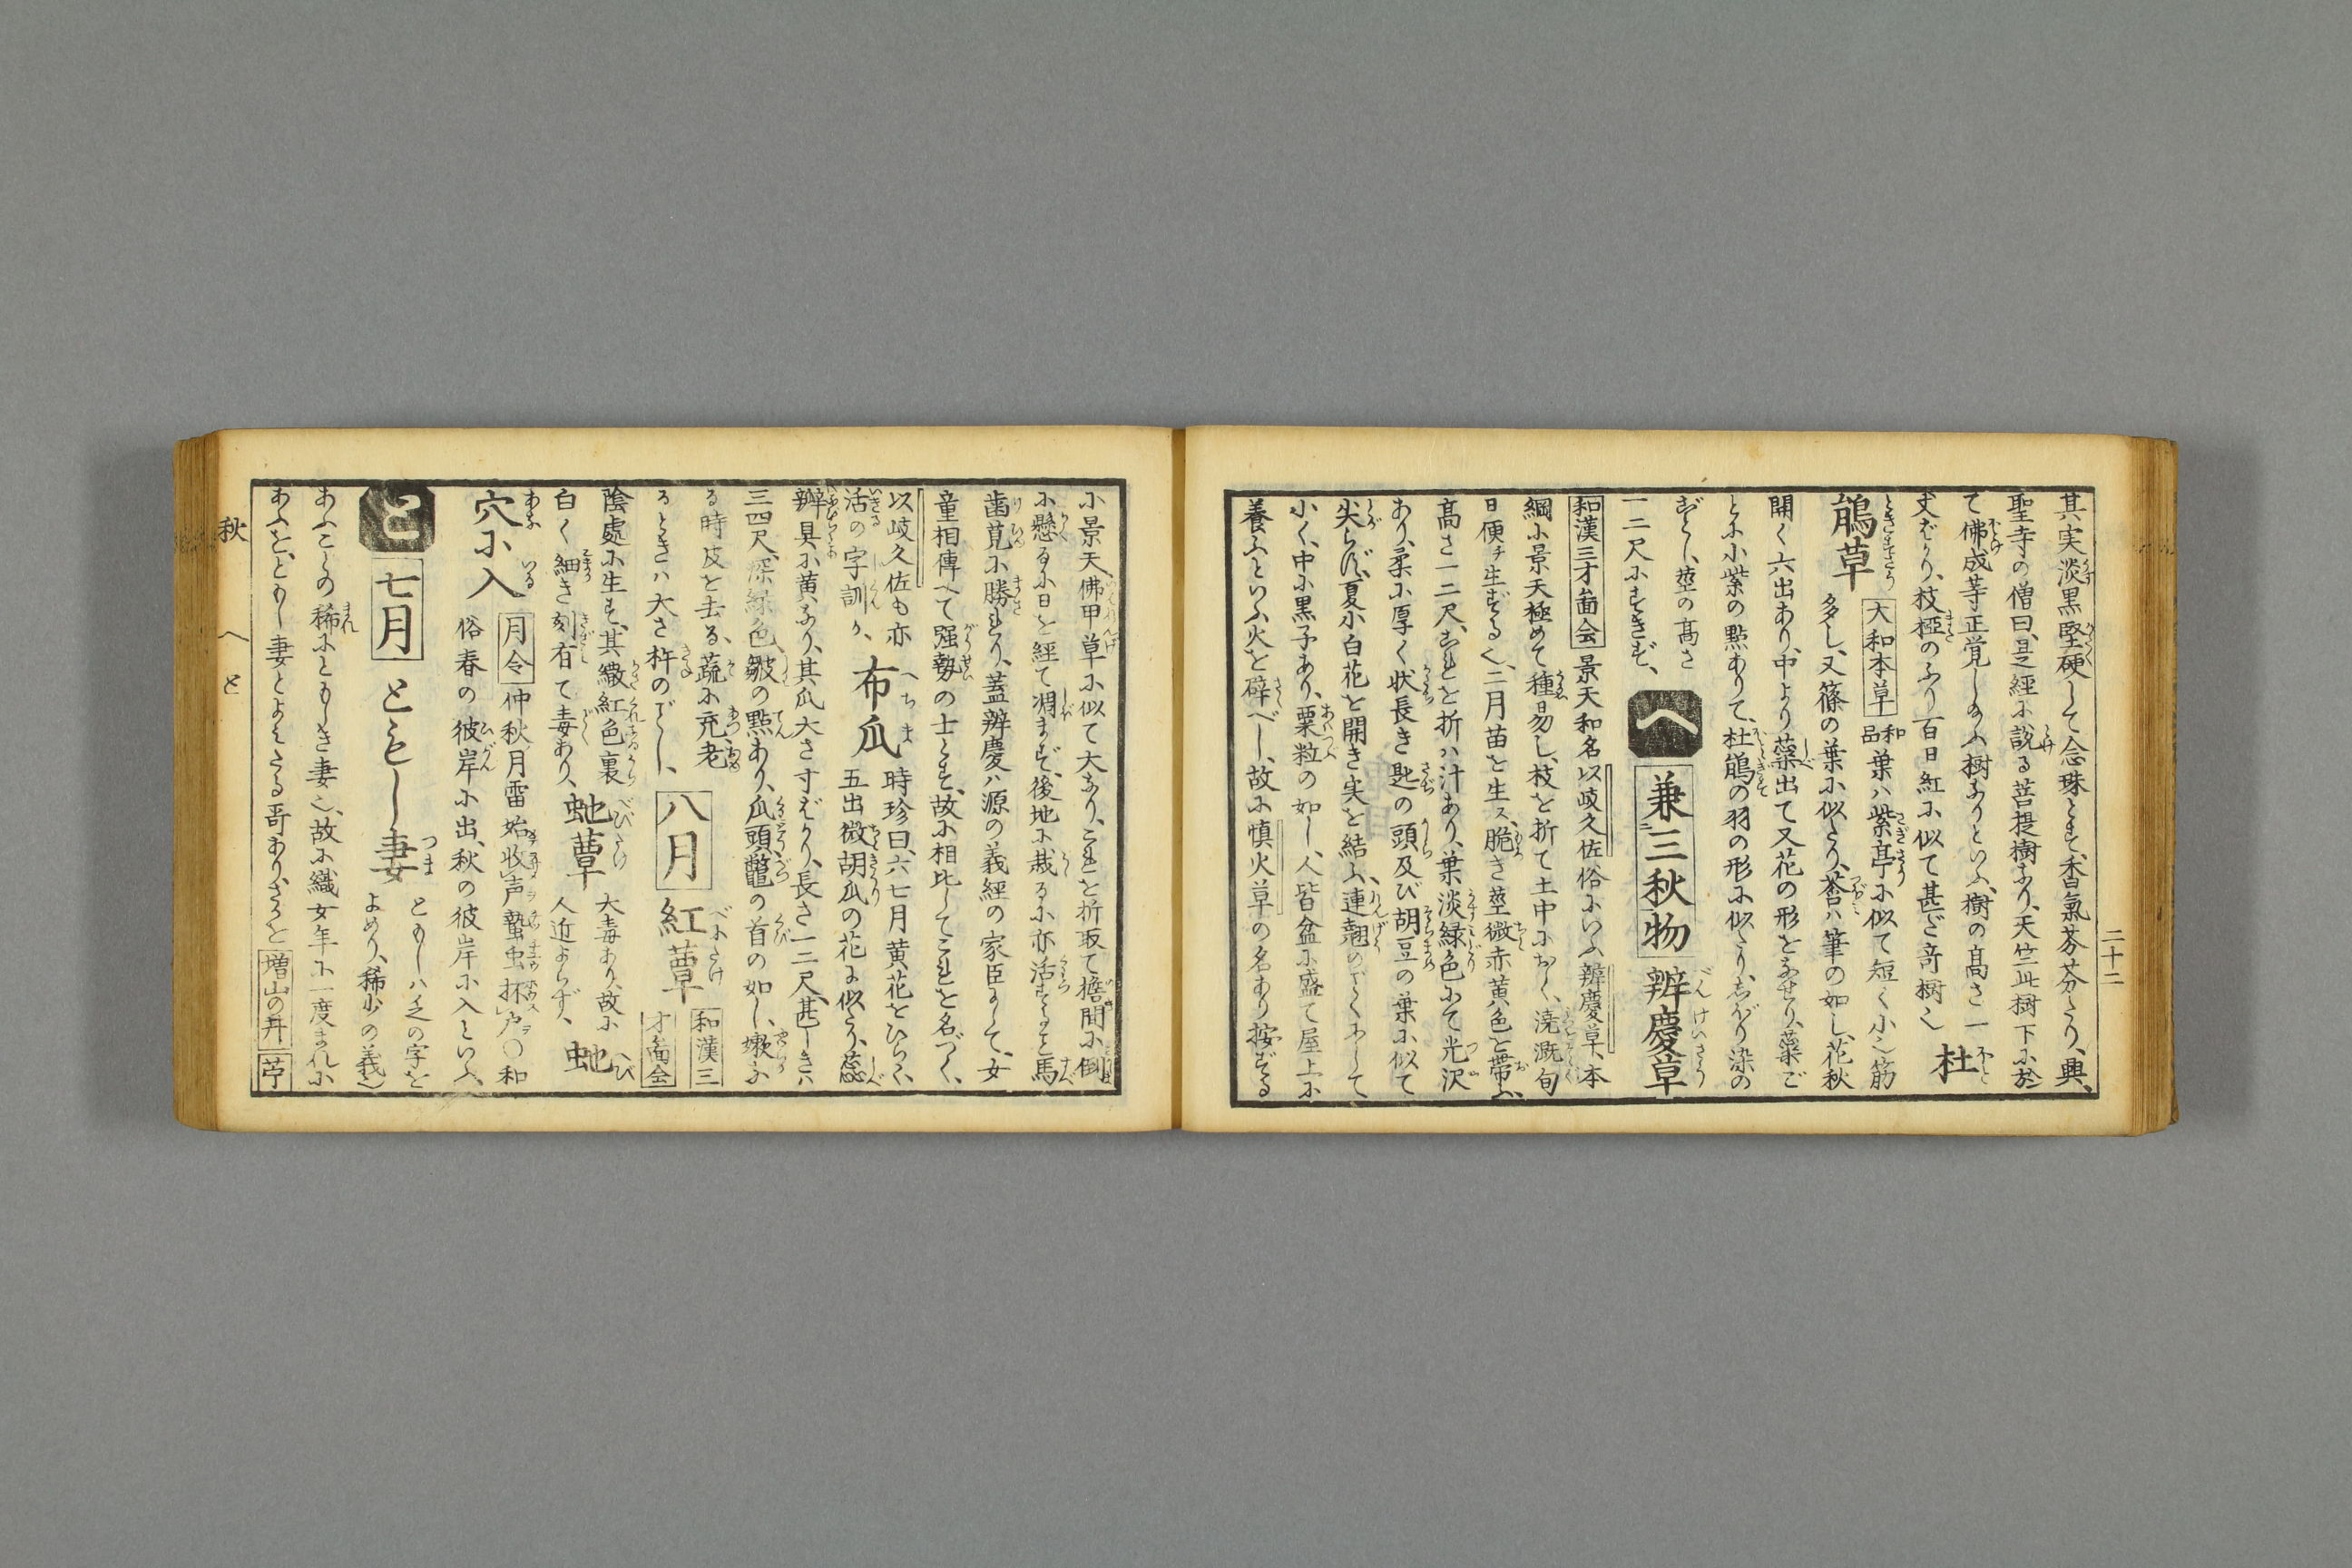 二十二
其実淡黒堅硬して念珠とす、香氣芬芬たり、興
聖寺の僧曰、是経に説る菩提樹なり、天竺此樹下に於
て佛成等正覚し給ふ樹なりといふ、樹の髙さ一
丈ばかり、枝極のふり百日紅に似て甚だ竒樹也 杜
鵑草 大和本草 和品 葉ハ紫蕚に似て短く小也筋
多し、又篠の葉に似たり、莟ハ筆の如し、花秋
開く六出あり、中より蘂出て又花の形をなせり、蘂ご
とに小紫の點ありて、杜鵑の羽の形に似たり、しぼり染の
ごとし、莖の髙さ
一二尺にすぎず、
へ 兼三秋物 辨慶草
和漢三才啚会 景天和名以岐久佐俗にいふ辨慶草、本
綱に景天極めて種易し、枝を折て土中におく、澆漑旬
日便チ生ずる也、二月苗を生ス、脆き莖微赤黄色を帯ふ、
髙さ一二尺、これを折ハ汁あり、葉淡緑色にて光沢
あり、柔に厚く状長き匙の頭及び胡豆の葉に似て
尖らず、夏小白花を開き実を結ふ、連翹のごとくにして
小く、中に黒子あり、粟粒の如し、人皆盆に盛て屋上に
養ふといふ火を辟べし、故に慎火草の名あり按ずる
に景天佛甲草に似て大なり、これを折取て檐間に倒
に懸る小日を経て凋まず、後地に栽るに亦活すること馬
歯莧に勝れり、蓋辨慶ハ源の義経の家臣にして、女
童相傳へて强勢の士とす、故に相比してこれを名づく、
以岐久佐も亦
活の字訓か、 布瓜 時珍曰、六七月黄花をひらく、
五出微胡瓜の花に似たり、蕊
辨具に黄なり、其瓜大さ寸ばかり、長さ一二尺、甚しきハ
三四尺、深緑色、皺の點あり、瓜頭鼈の首の如し、嫰な
る時皮を去る、蔬に充、老
るときハ大さ杵のごとし、 八月 紅蕈 和漢三才啚会
陰處に生ず、其繖紅色裏
白く細き刻有て毒あり、 虵蕈 大毒あり、故に
人近よらず、 虵
穴に入 月令 仲秋ノ月雷始收声蟄虫抔戸〇和
俗春の彼岸に出、秋の彼岸に入といふ、
と 七月 ともし妻 ともしハ乏の字を
よめり、稀少の義也
あふことの稀にともしき妻也、故に織女年に一度まれに
あふを、ともし妻とよみたる哥あり、さるを 増山の井
秋 へ と